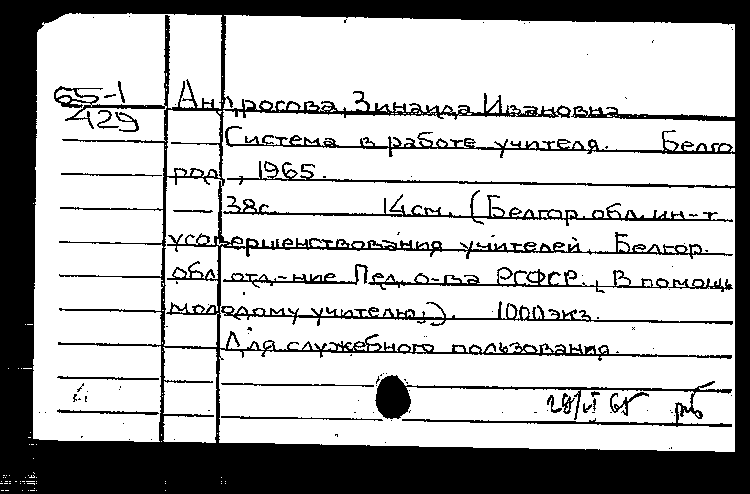 65-1
429
Андросова, Зинаида Ивановна
Система в работе учителя. Белго
род, 1965.
38с. 14см. (Белгор. обл. ин-т
усовершенствования учителей. Белгор.
обл. отд-ние Пед. о-ва РСФСР. В помощь
молодому учителю,). 1000 экз.
Для служебного пользования.
28/VI 65